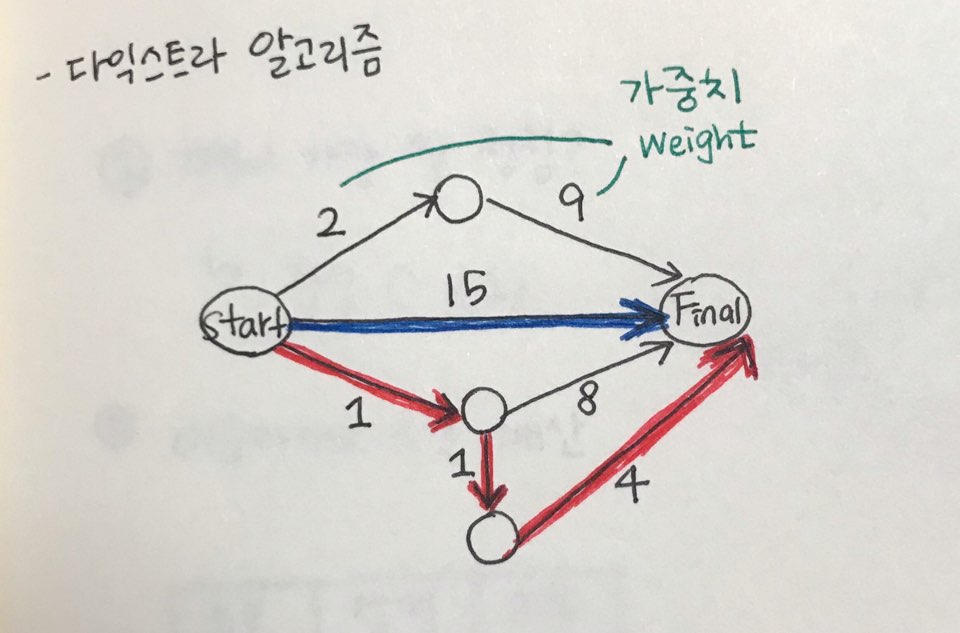 - 다익스트라 알고리즘
가중치
weight
2
9
15
Start
Final
1
8
1
4